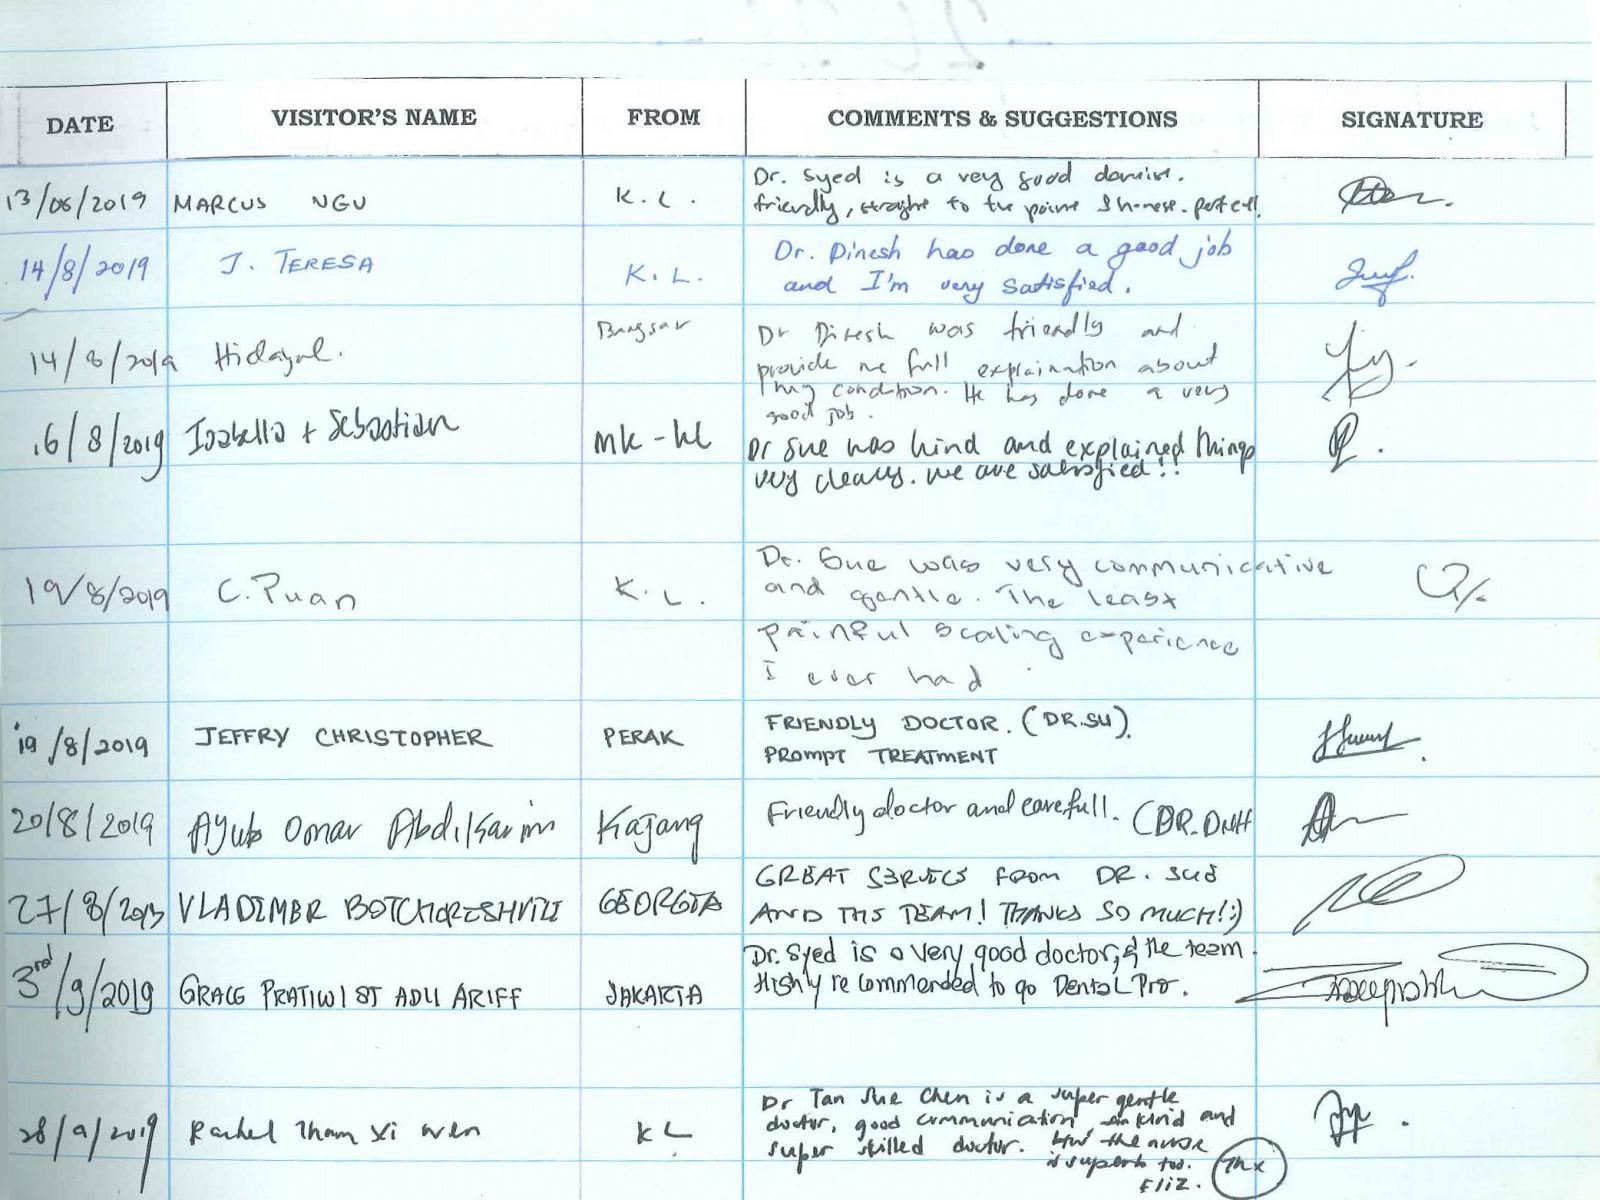 DATE VISITOR'S NAME FROM COMMENTS & SUGGESTIONS SIGNATURE
Dr. Syed is a very good
13/08/2019 MARCUS NGU K.L. friendly, to the
Dr. Dinesh has done a good job
14/8/2019 J. TERESA K.L. and I'm very satisfied.
Bangsar Dr Dinesh was friendly and
14/8/2019 provide me full explaination about
my condition. He has done a very
good job.
16/8/2019 Isabella + Sebastian Dr Sue was kind and explained things
very clearly. We are satisfied!!
Dr. Sue was very communicative
19/8/2019 C. Puan K.L. and gentle. The least
painful scaling experience
I ever had
FRIENDLY DOCTOR. (DR.SU).
19/8/2019 JEFFRY CHRISTOPHER PERAK PROMPT TREATMENT
20/8/2019 Ayub Omar Kajang Friendly doctor and carefull.
GREAT FROM DR. SUE
VLADIMER BOTCHORESHVILI GEORGIA AND THE TEAM! THANKS SO MUCH!:)
Dr. Syed is a very good doctor, & the team.
3rd/9/2019 JAKARTA Highly recommended to go Dental Pro.
Dr Tan Sue Chen is a super gentle
28/9/2019 KL doctor, good communication kind and
super skilled doctor. the nurse
is superb too.
Thx